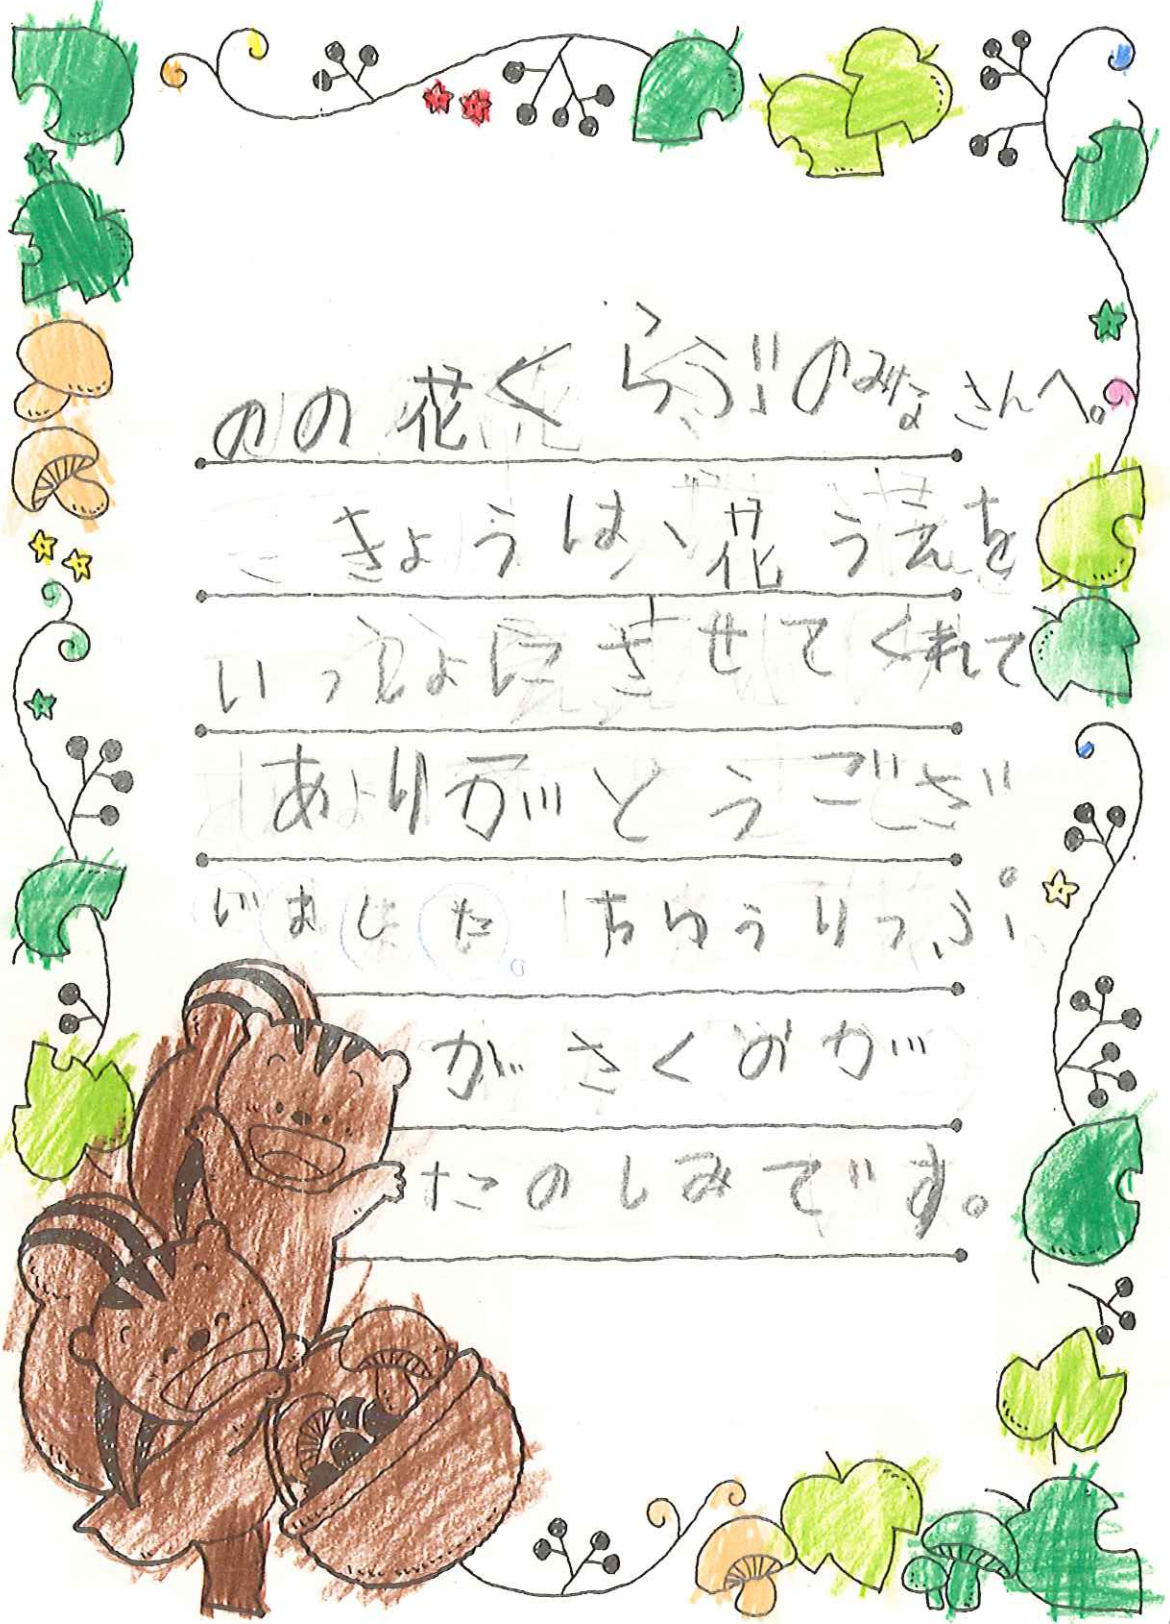 のの花くらぶのみなさんへ。
きょうは、花うえを
いっしょにさせてくれて
ありがとうござ
いました。ちゅうりっぷ
がさくのが
たのしみです。